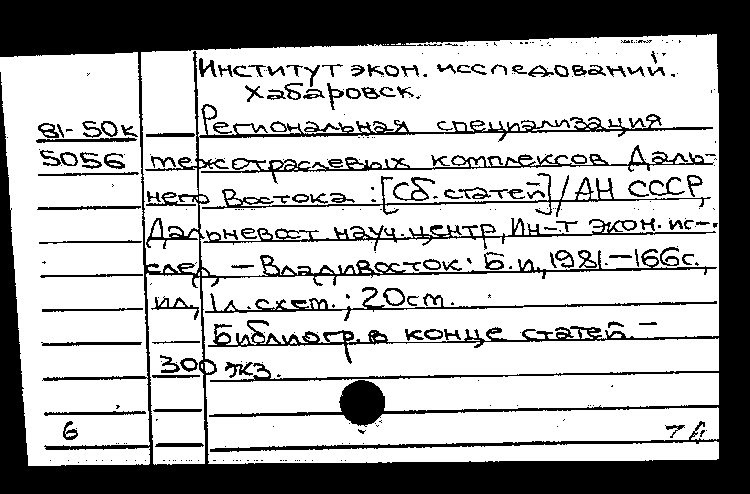 Институт экон. исследований.
Хабаровск.
81-50к Региональная специализация
5056 межотраслевых комплексов Даль-
него Востока : [Сб. статей] / АН СССР,
Дальневост. науч. центр, Ин-т экон. ис-
след. - Владивосток: Б.и., 1981. - 166 с.,
ил., 1 л. схем. ; 20 см.
Библиогр. в конце статей. -
300 экз.
6